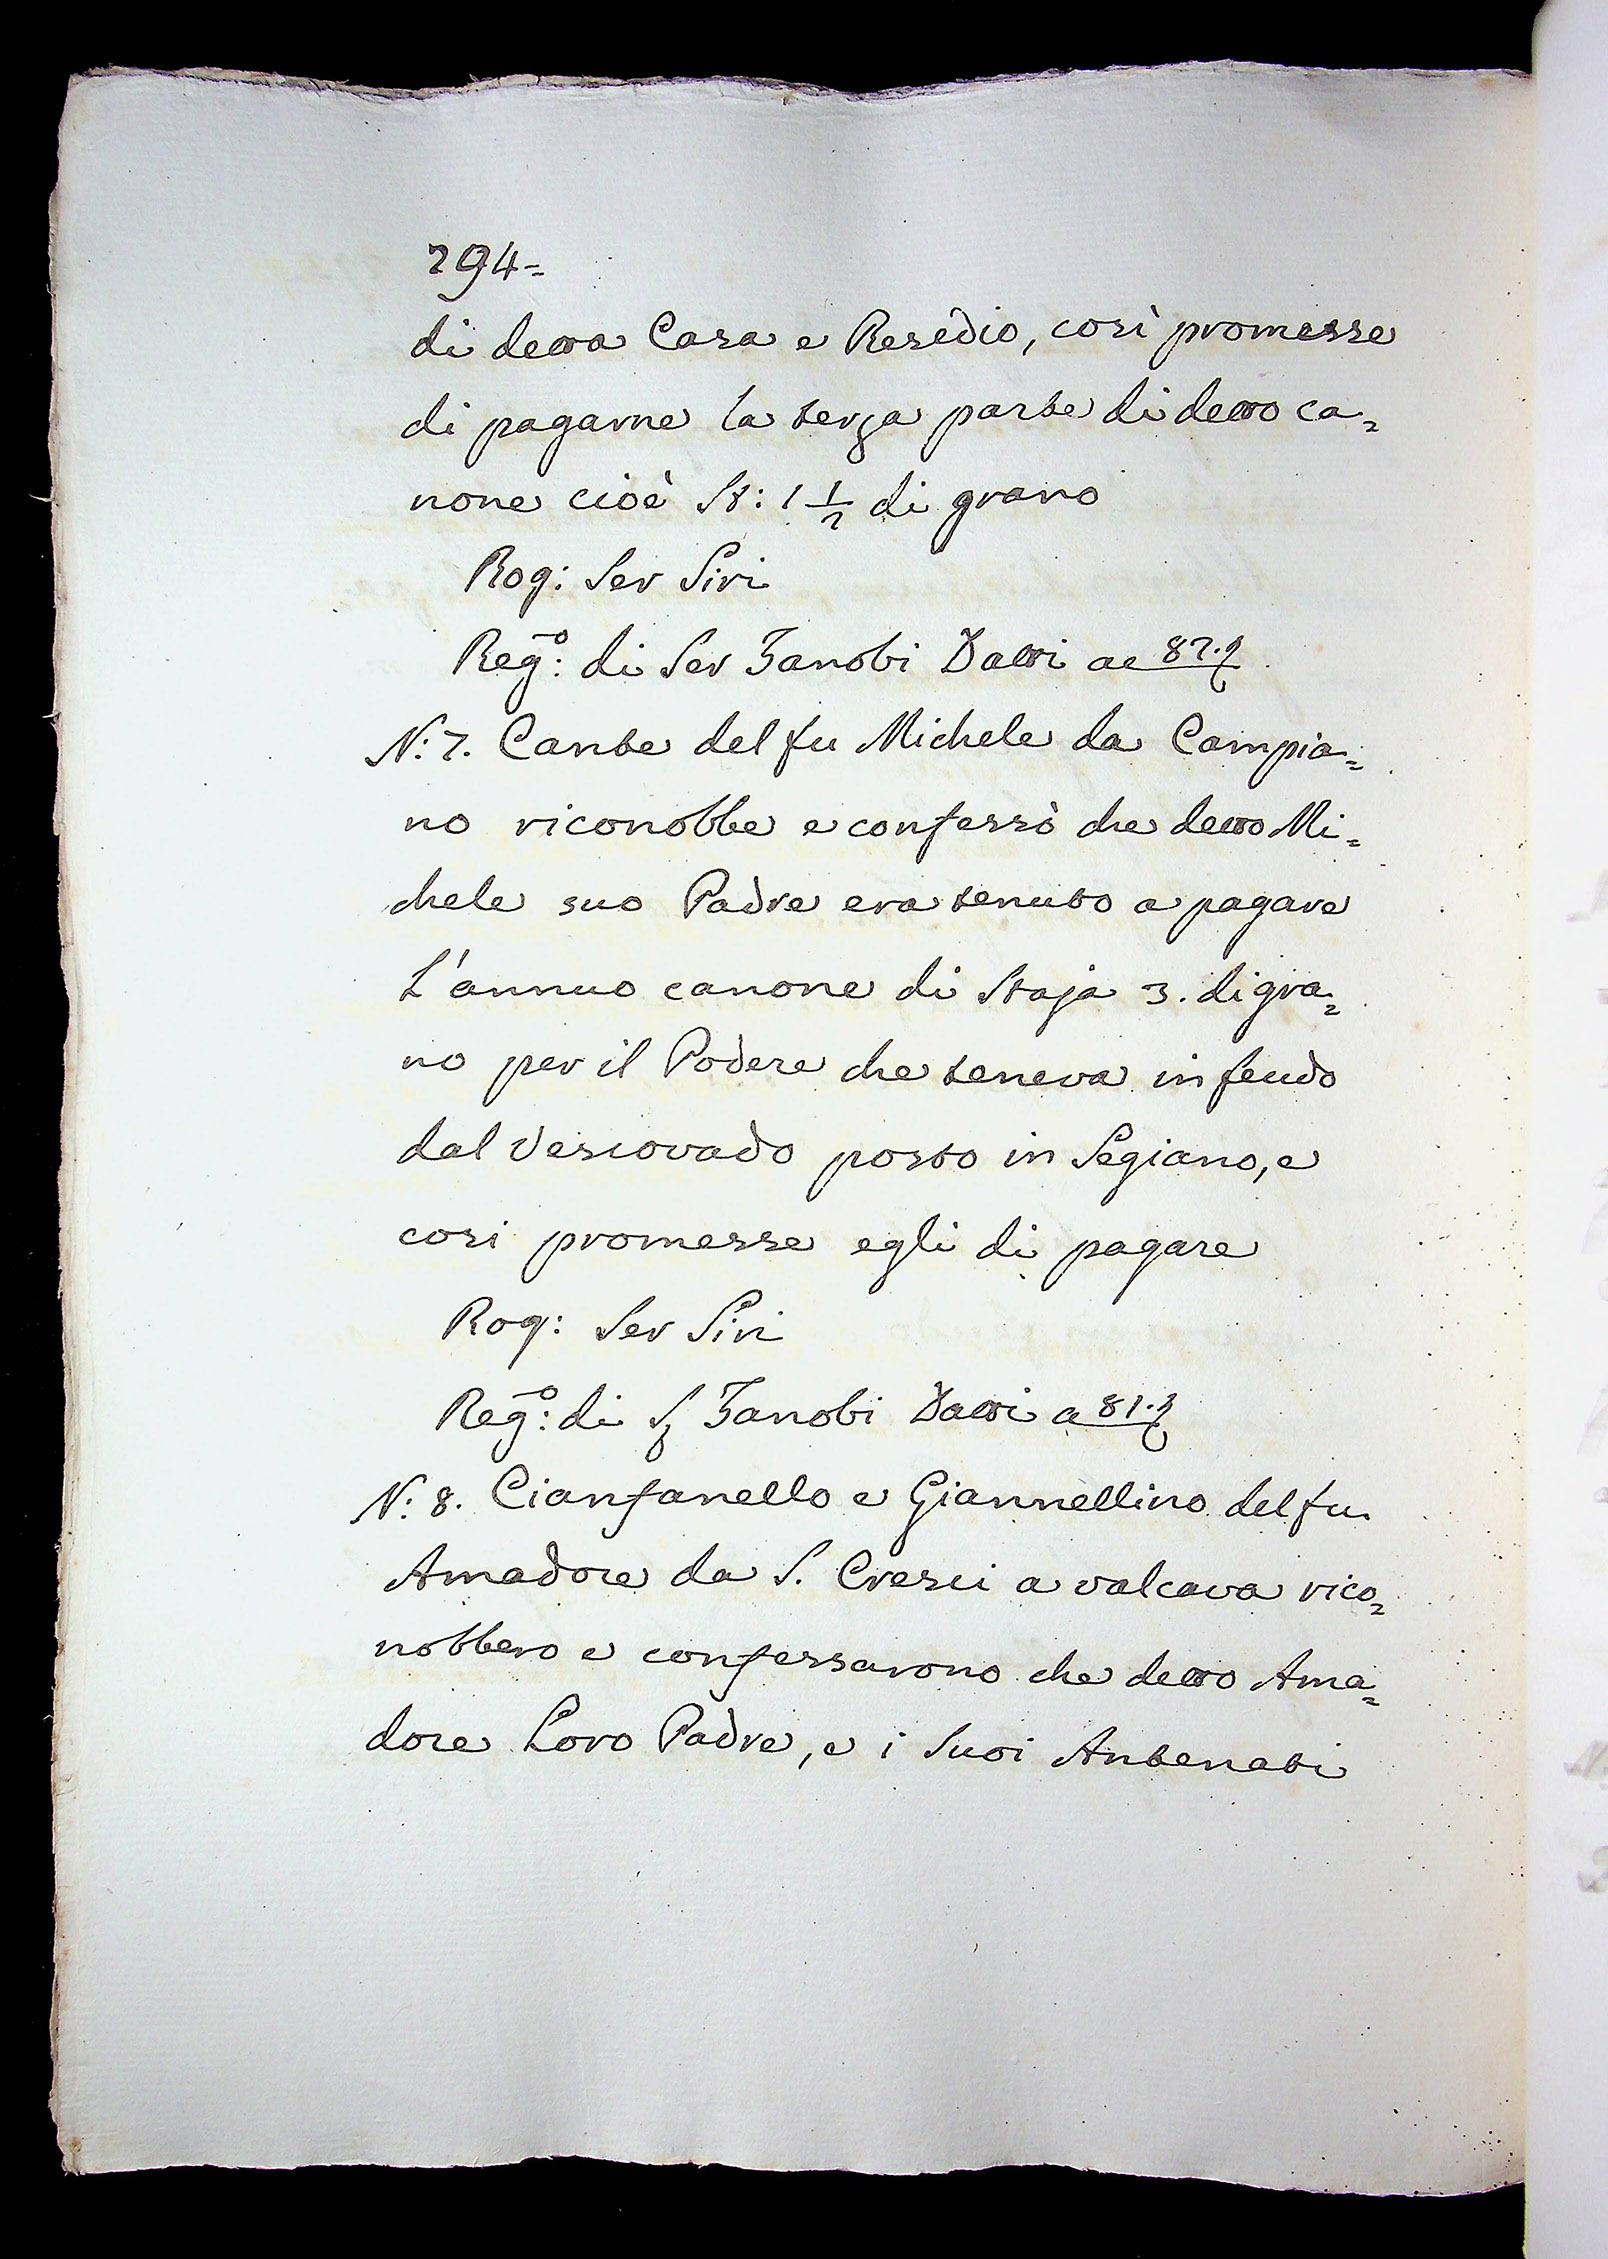 294=
di detta Casa e Resedio, così promesse
di pagarne la terza parte di detto ca=
none cioè St: 1 1/2 di grano
Rog: Ser Siri
Reg:o di Ser Zanobi Datti ac 82.
N: 7. Cante del fu Michele da Campia=
no riconobbe e confessò che detto Mi=
chele suo Padre era tenuto a pagare
L'annuo canone di Staja 3. di gra=
no per il Podere che teneva in feudo
dal Vescovado posto in Segiano, e
cosi promesse egli di pagare
Rog: Ser Siri
Reg:o di S. Zanobi Datti a 81.
N: 8. Cianfanello e Giannellino del fu
Amadore da S. Cresci a valcava rico=
nobbero e confessarono che detto Ama=
dore Loro Padre, e i Suoi Antenati